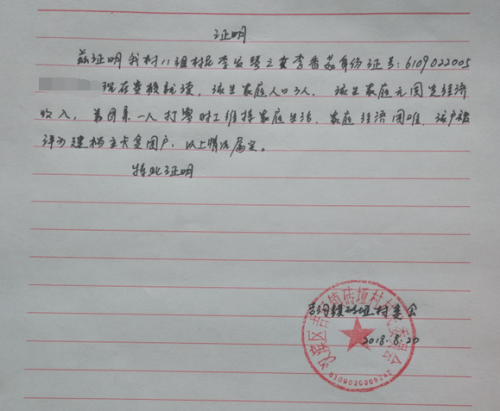 证明
兹证明我村八组村民李安贤之女李香蕊身份证号:6109022005
现在贵校就读,该生家庭人口3人,该生家庭无固定经济
收入,靠母亲一人打零时工维持家庭生活,家庭经济困难,该户被
评为建档立卡贫困户,以上情况属实。
特此证明
村委会
2018.8.20